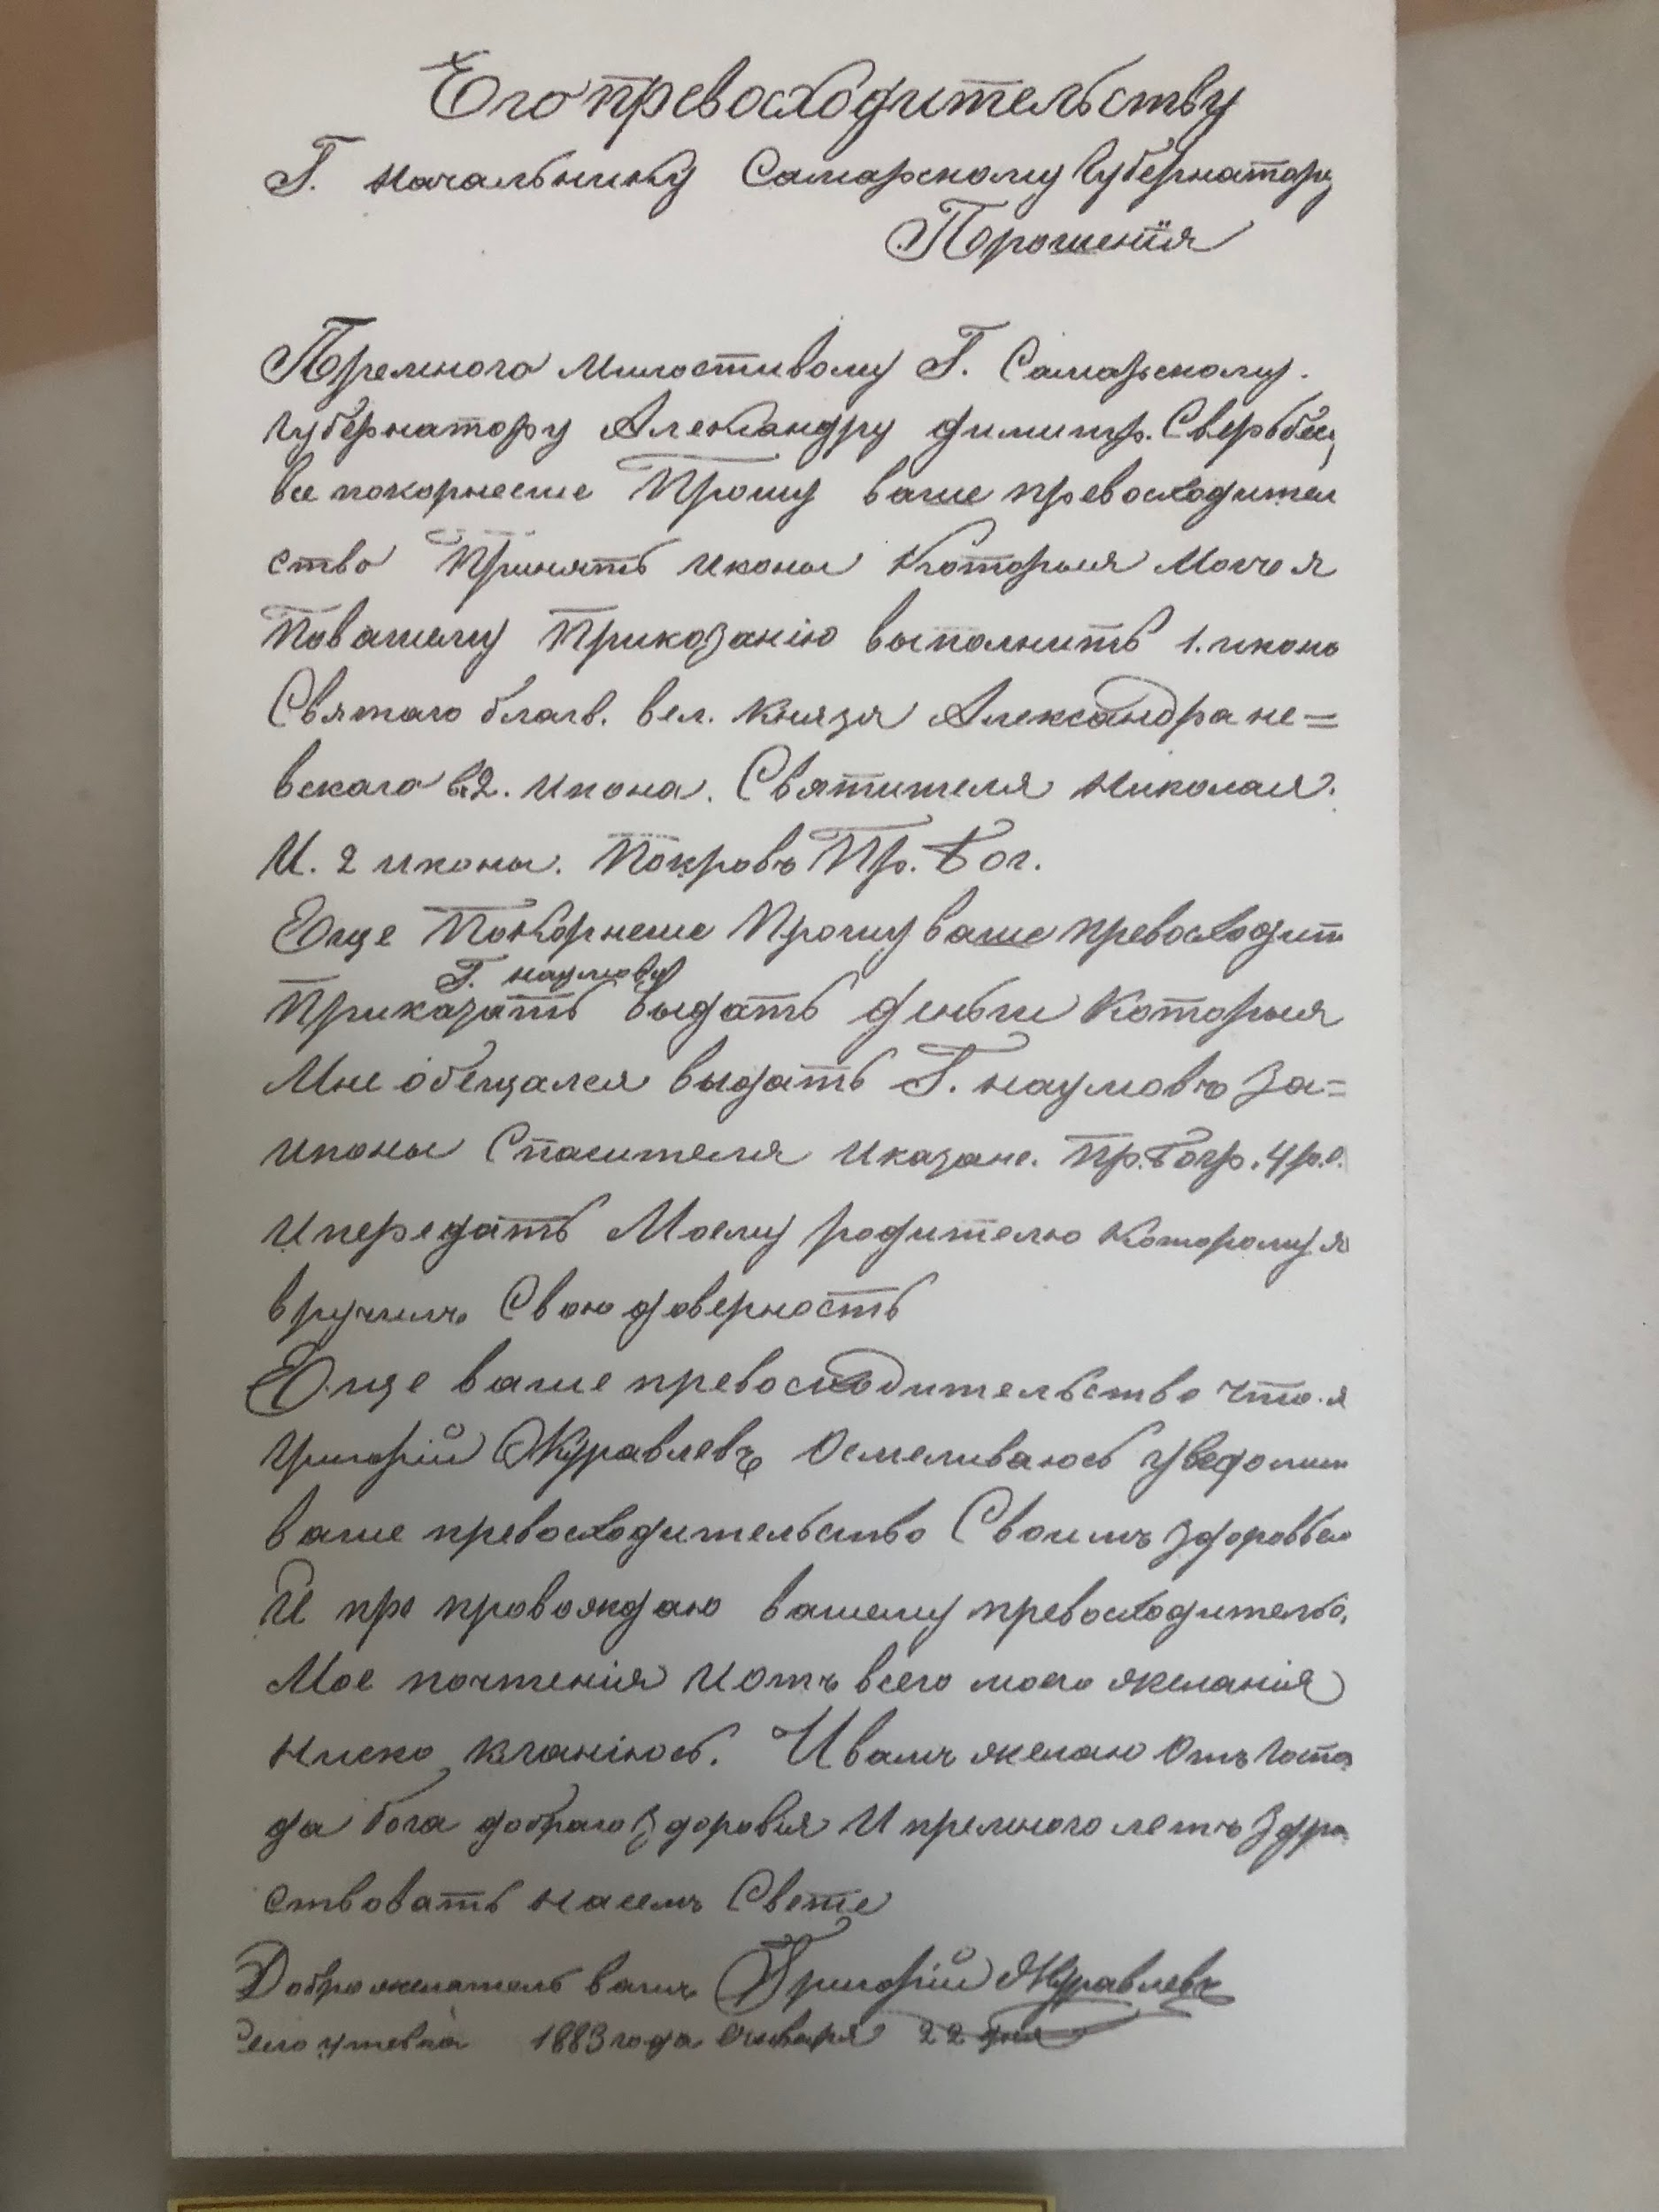 Его превосходительству
Г. Начальнику Самарскому губернатору
Порошенiя
Премного Милостивому Г. Самарскому.
губернатору Александру димитр. Свербееву
все покорнеше Прошу ваше превосходител
ство Принять иконы Которыя Могъ я
По вашему Приказанiю выполнить 1. икона
Святаго благв. вел. Князя Александра не=
вскаго 2. икона. Святителя Николая.
И. 2 иконы. Покровъ Пр. Бог.
Еще Покорнеше Прошу ваше превосходит
Г. наумову
Приказать выдать деньги Которыя
Мне обещался выдать Г. наумовъ За=
иконы Спасителя и казанс. Пр. Богр. 4 р. с.
и передать Моему родителю Которому я
вручилъ Свою доверность
Еще ваше превосходительство что я
Григорiй Журавлевъ Осмеливаюсь уведомит
ваше превосходительство Своимъ здоровьем
И пре провождаю вашему превосходительс.
Мое почтенiя И отъ всего моего желанiя
Ниско кланiюсь. И вамъ желаю Отъ Госпо
да бога добраго Здоровiя И премного летъ Здра
ствовать на семъ Свете
Доброжелатель вашъ Григорiй Журавлевъ
Село утевка 1883 года января 22 дня